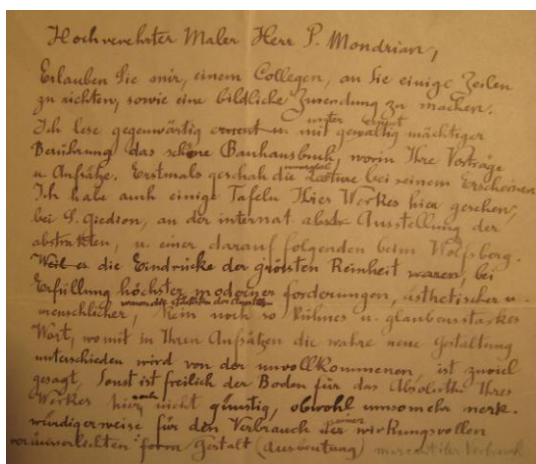 Hochverehrter Maler Herr P. Mondrian,
Erlauben Sie mir, einem Collegen, an Sie einige Zeilen
zu richten, sowie eine bildliche Zusendung zu machen.
unter
Ich lese gegenwärtig erneut u. mit gewaltig mächtiger
Berührung das schöne Bauhausbuch, worin Ihre Vorträge
u. Aufsätze. Erstmals geschah die Lectüre bei seinem Erscheinen
Ich habe auch einige Tafeln Ihres Werkes hier gesehen,
bei S. Giedion, an der internat. Ausstellung der
abstrakten, u. einer darauf folgenden beim Wolfsberg.
Weil es die Eindrücke der grössten Reinheit waren, bei
Erfüllung höchster moderner forderungen, ästhetischer u.
menschlicher, Kein noch so kühnes u. glaubensstarkes
Wort, womit in Ihren Aufsätzen die wahre neue Gestaltung
unterschieden wird von der unvollkommenen, ist zuviel
gesagt, Sonst ist freilich der Boden für das Absolute Ihres
Werkes hier noch nicht günstig, obwohl umsomehr merk-
würdigerweise für den Verbrauch der wirkungsvollen
form/Gestalt (Ausbeutung)